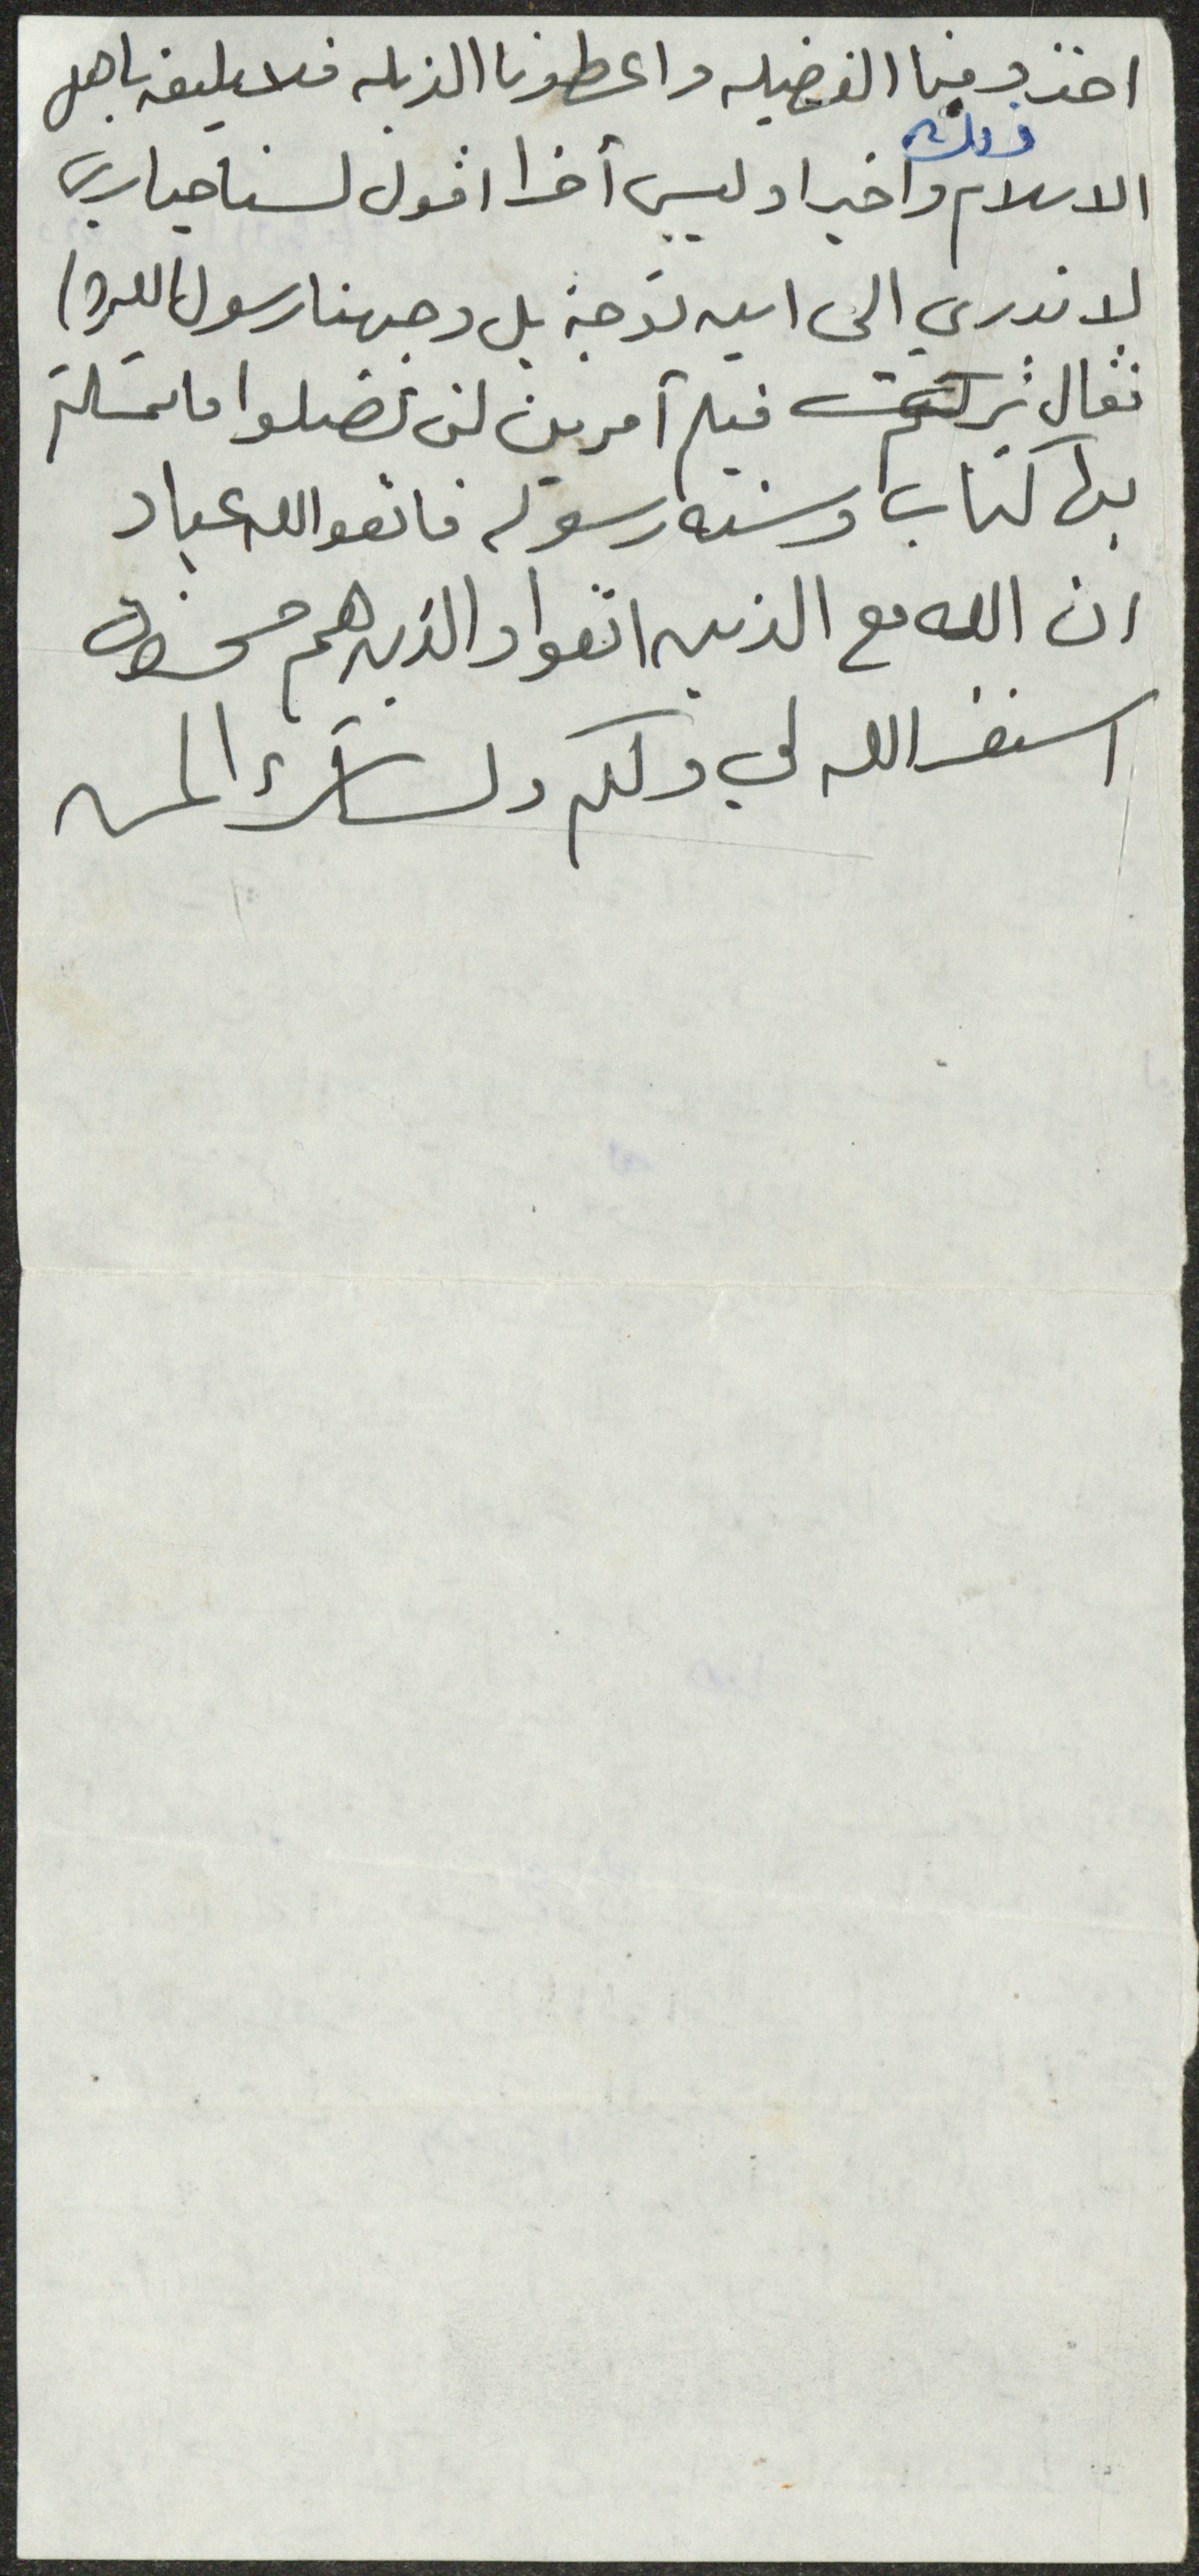 اخذو منا الفضيله واعطونا الرذيله فلا يليق باهل
ذلك
الاسلام واخيرا وليس أخرا اقول لسنا حيارى
لا ندري الى اين نوجة بل وجهنا رسول الله
فقال تركت فيكم أمرين لن تضلوا ما تمسكتم
بها كتاب الله وسنه رسوله فاتقوا الله عباد
ان الله مع الذين اتقوا والذين هم محسنون
استغفر الله لي ولكم ولسائر المسـ